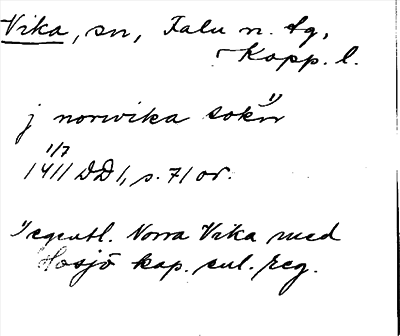 Vika, sn, Falu n. tg,
Kopp. l.
j norwika sokn 1)
1/7
1411 DD 1, s. 71 or.
1) egentl. Norra Vika med
Hosjö kap. enl. reg.